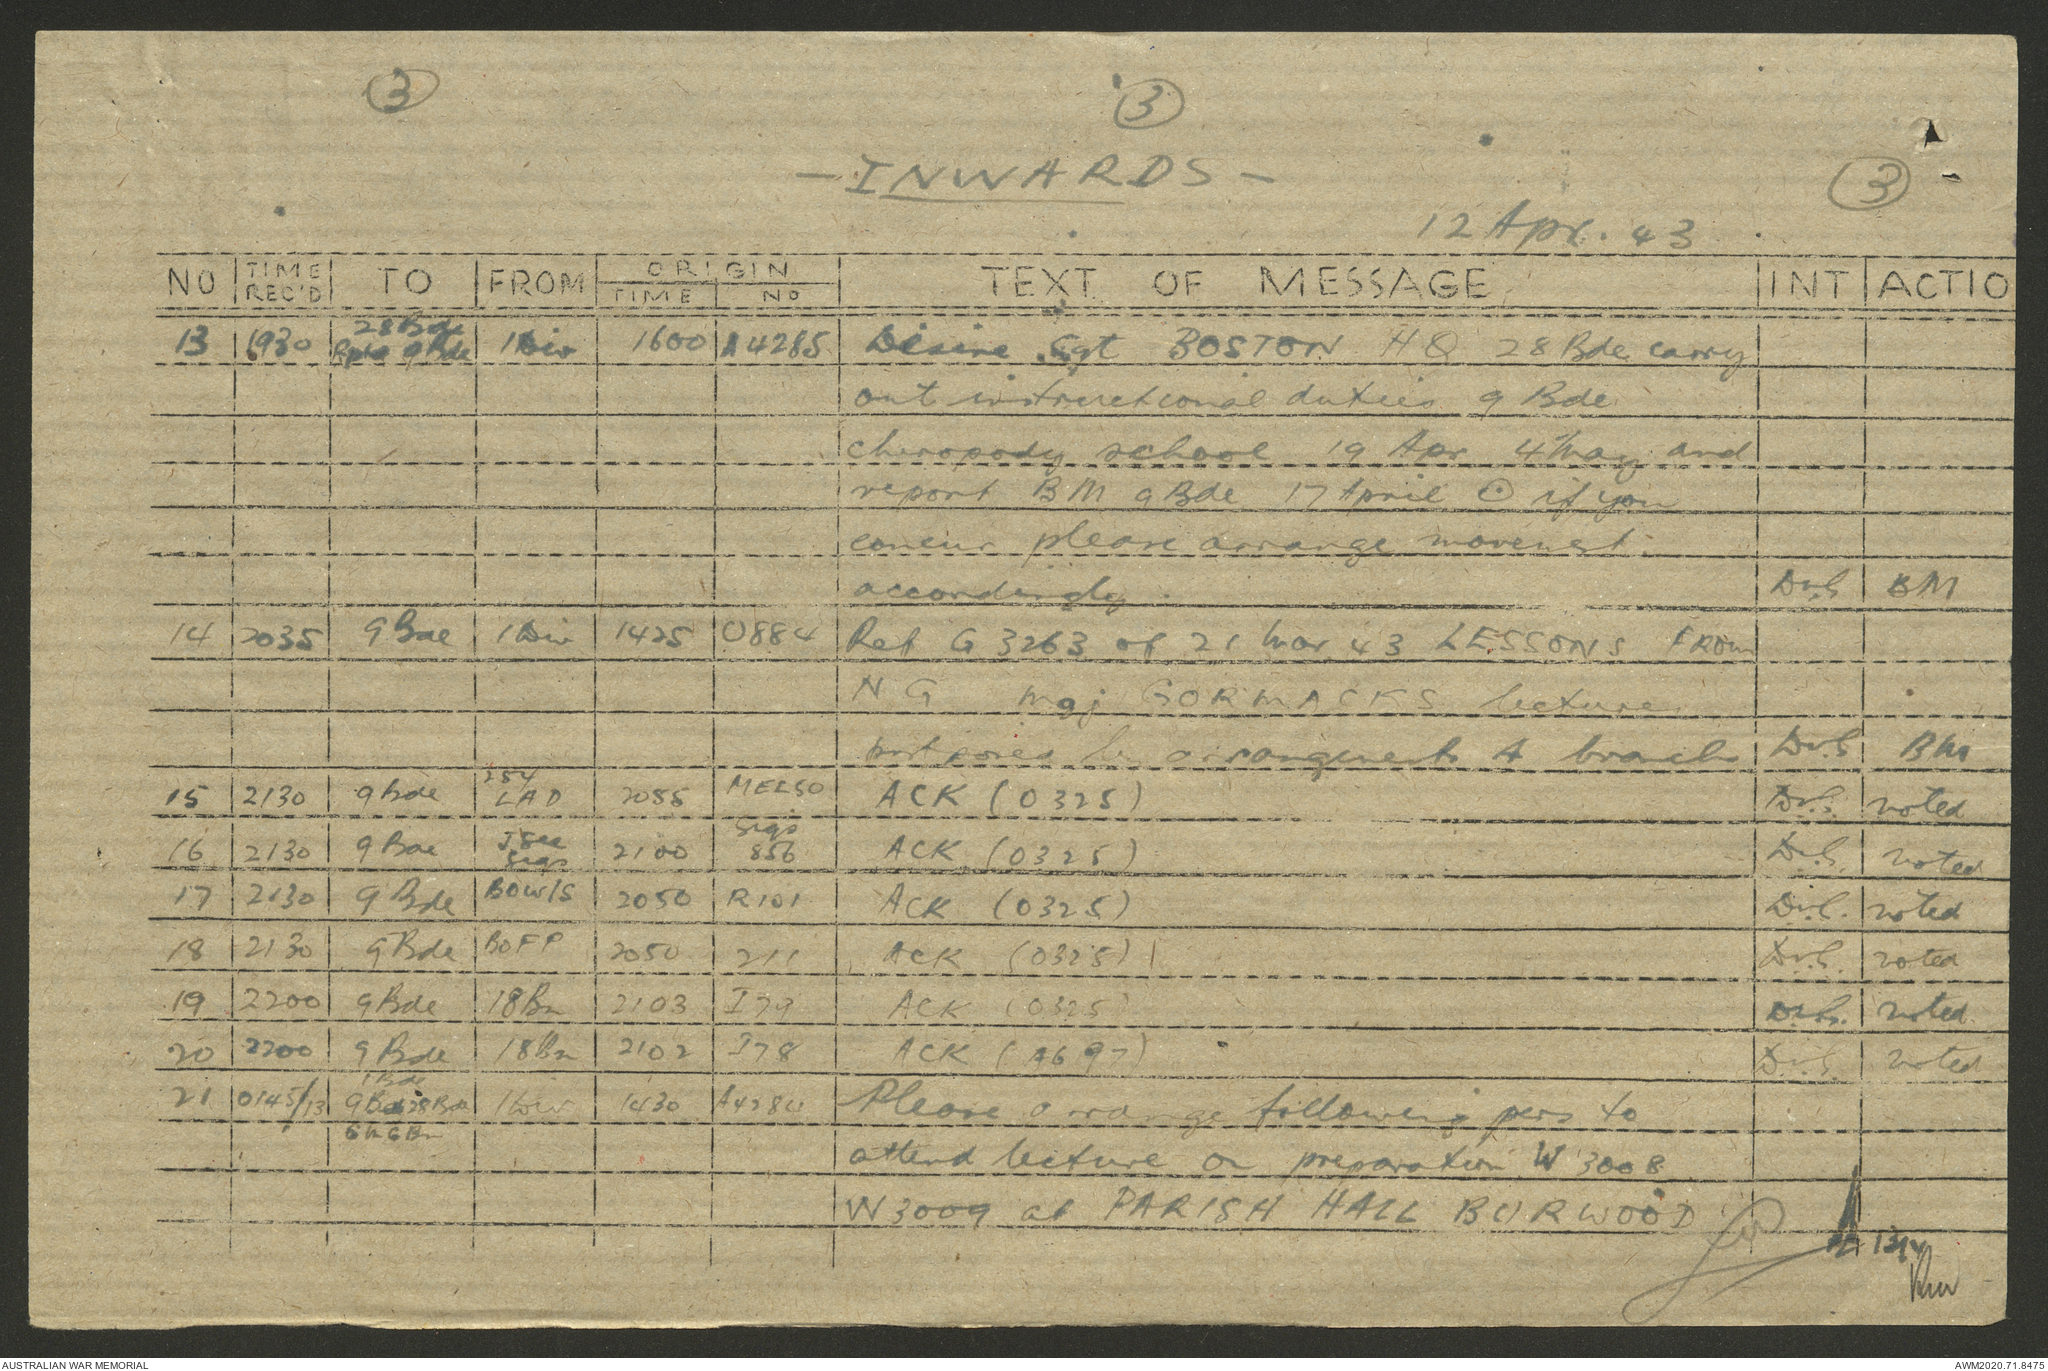 3 3
3
- INWARDS -
12 Apr. 43
NO TIME REC'D TO FROM ORIGIN TIME NO TEXT OF MESSAGE INT ACTIO
13 1930 28 Bde Rptd 9 Bde 1 Div 1600 A4285 Desire Sgt BOSTON HQ 28 Bde carry
out instructional duties 9 Bde
cheropody school 19 Apr 4 May and
report BM 9 Bde 17 April ⊙ if you
concur please arrange movement
accordingly. BM
14 2035 9 Bde 1 Div 1425 O884 Ref G 3263 of 21 Mar 43 LESSONS FROM
NG Maj GORMACKS lecture
arrangements A branch BM
15 2130 9 Bde 254 LAD 2055 ACK (0325) noted
16 2130 9 Bde J Sec Sigs 2100 Sigs 856 ACK (0325) noted
17 2130 9 Bde BOWIS 2050 R101 ACK (0325) noted
18 2130 9 Bde BOFP 2050 211 ACK (0325) noted
19 2200 9 Bde 18 Bn 2103 I79 ACK (0325) noted
20 2200 9 Bde 18 Bn 2102 I78 ACK (A697) noted
21 0145/13 1 Bde 9 Bde 28 Bde 1 Div 1430 A4284 Please arrange following pers to
attend lecture on preparation W 3008
W 3009 at PARISH HALL BURWOOD
13/4
AUSTRALIAN WAR MEMORIAL AWM2020.71.8475